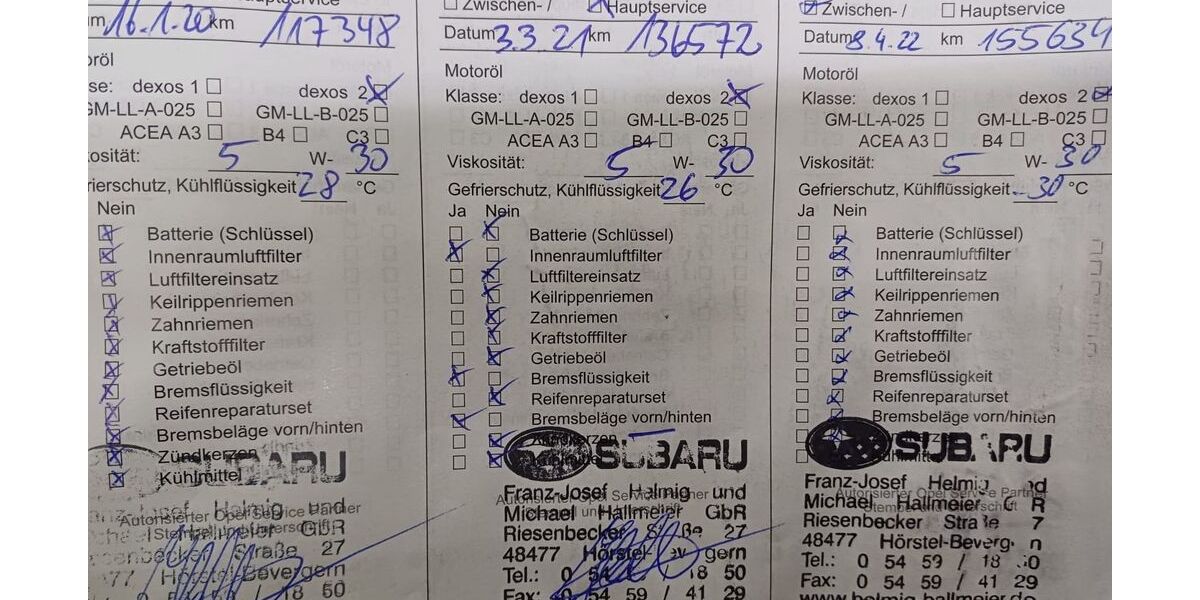 Hauptservice
16.1.20 km 117348
dexos 1 dexos 2
GM-LL-A-025 GM-LL-B-025
ACEA A3 B4 C3
5 W- 30
Kühlflüssigkeit 28 °C
Nein
Batterie (Schlüssel)
Innenraumluftfilter
Luftfiltereinsatz
Keilrippenriemen
Zahnriemen
Kraftstofffilter
Getriebeöl
Bremsflüssigkeit
Reifenreparaturset
Bremsbeläge vorn/hinten
Zündkerzen
Kühlmittel
SUBARU
Helmig und
Autorisierter Opel Service Partner
Hallmeier GbR
Straße 27
Hörstel-Bevergern
18 50
Zwischen- / Hauptservice
Datum 3.3 21 km 136572
Motoröl
Klasse: dexos 1 dexos 2
GM-LL-A-025 GM-LL-B-025
ACEA A3 B4 C3
Viskosität: 5 W- 30
Gefrierschutz, Kühlflüssigkeit 26 °C
Ja Nein
Batterie (Schlüssel)
Innenraumluftfilter
Luftfiltereinsatz
Keilrippenriemen
Zahnriemen
Kraftstofffilter
Getriebeöl
Bremsflüssigkeit
Reifenreparaturset
Bremsbeläge vorn/hinten
Zündkerzen
SUBARU
Franz-Josef Helmig und
Autorisierter Opel Service Partner
Michael Hallmeier GbR
Riesenbecker Straße 27
48477 Hörstel-Bevergern
Tel.: 0 54 18 50
Fax: 0 54 59 / 41 29
Zwischen- / Hauptservice
Datum 8.4.22 km 155634
Motoröl
Klasse: dexos 1 dexos 2
GM-LL-A-025 GM-LL-B-025
ACEA A3 B4 C3
Viskosität: 5 W- 30
Gefrierschutz, Kühlflüssigkeit -30 °C
Ja Nein
Batterie (Schlüssel)
Innenraumluftfilter
Luftfiltereinsatz
Keilrippenriemen
Zahnriemen
Kraftstofffilter
Getriebeöl
Bremsflüssigkeit
Reifenreparaturset
Bremsbeläge vorn/hinten
SUBARU
Franz-Josef Helmig
Autorisierter Opel Service Partner
Michael Hallmeier
Riesenbecker
48477
Tel.: 0 54 59 / 18
Fax: 0 54 59 / 41 29
www.helmig-hallmeier.de